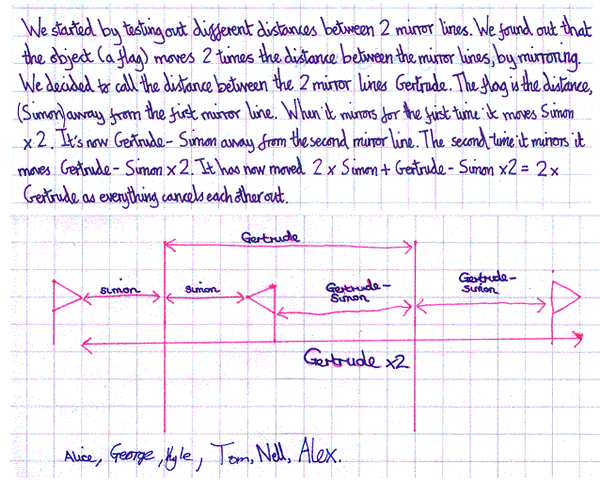 We started by testing out different distances between 2 mirror lines. We found out that
the object (a flag) moves 2 times the distance between the mirror lines, by mirroring.
We decided to call the distance between the 2 mirror lines Gertrude. The flag is the distance,
(Simon) away from the first mirror line. When it mirrors for the first time it moves Simon
x 2. It's now Gertrude - Simon away from the second mirror line. The second time it mirrors it
moves Gertrude - Simon x2. It has now moved 2 x Simon + Gertrude - Simon x2 = 2 x
Gertrude as everything cancels each other out.
Gertrude
simon
simon
Gertrude-
Simon
Gertrude-
Simon
Gertrude x2
Alice, George, Kyle, Tom, Nell, Alex.